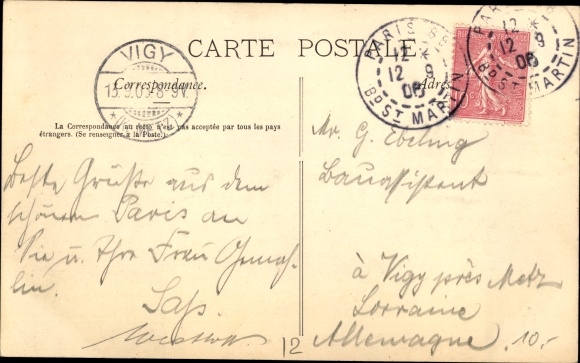 CARTE POSTALE
Correspondance.
Adres
La Correspondance au recto n'est pas acceptée par tous les pays
étrangers. (Se renseigner à la Poste.)
VIGY
PARIS
12 9
BD ST MARTIN
PARIS
12 9
BD ST MARTIN
Beste Grüße aus dem
schönen Paris an
Sie u. Ihre Frau Gemah-
lin.
Mr. G. Ebeling
Bauassistent
à Vigy près Metz
Lorraine
Allemagne
12
10.-